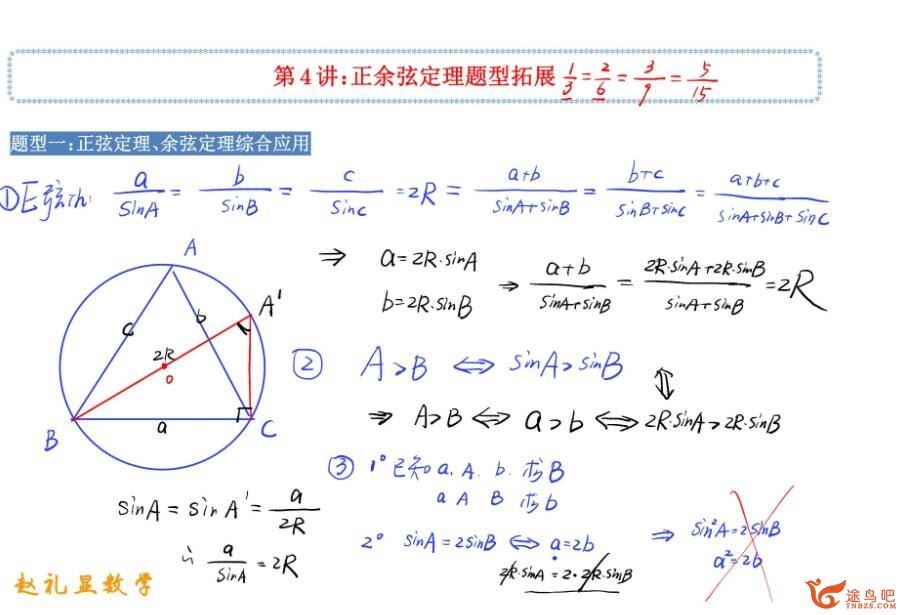 第4讲:正余弦定理题型拓展 1/3 = 2/6 = 3/9 = 5/15
题型一:正弦定理、余弦定理综合应用
①正弦Th: a/SinA = b/SinB = c/Sinc = 2R = a+b/SinA+SinB = b+c/SinB+Sinc = a+b+c/SinA+SinB+SinC
⇒ a=2R·SinA
b=2R·SinB ⇒ a+b/SinA+SinB = 2R·SinA+2R·SinB/SinA+SinB = 2R
A
A'
c
b
2R
O
B
a
C
② A>B ⇔ SinA>SinB
⇕
⇒ A>B ⇔ a>b ⇔ 2R·SinA>2R·SinB
SinA = SinA' = a/2R
∴ a/SinA = 2R
③ 1° 已知a. A. b. 求B
a A B 求b
2° SinA=2SinB ⇔ a=2b
2R·SinA=2·2R·SinB
⇒ Sin²A=2SinB
a²=2b
赵礼显数学
途鸟吧
TNBZS.COM